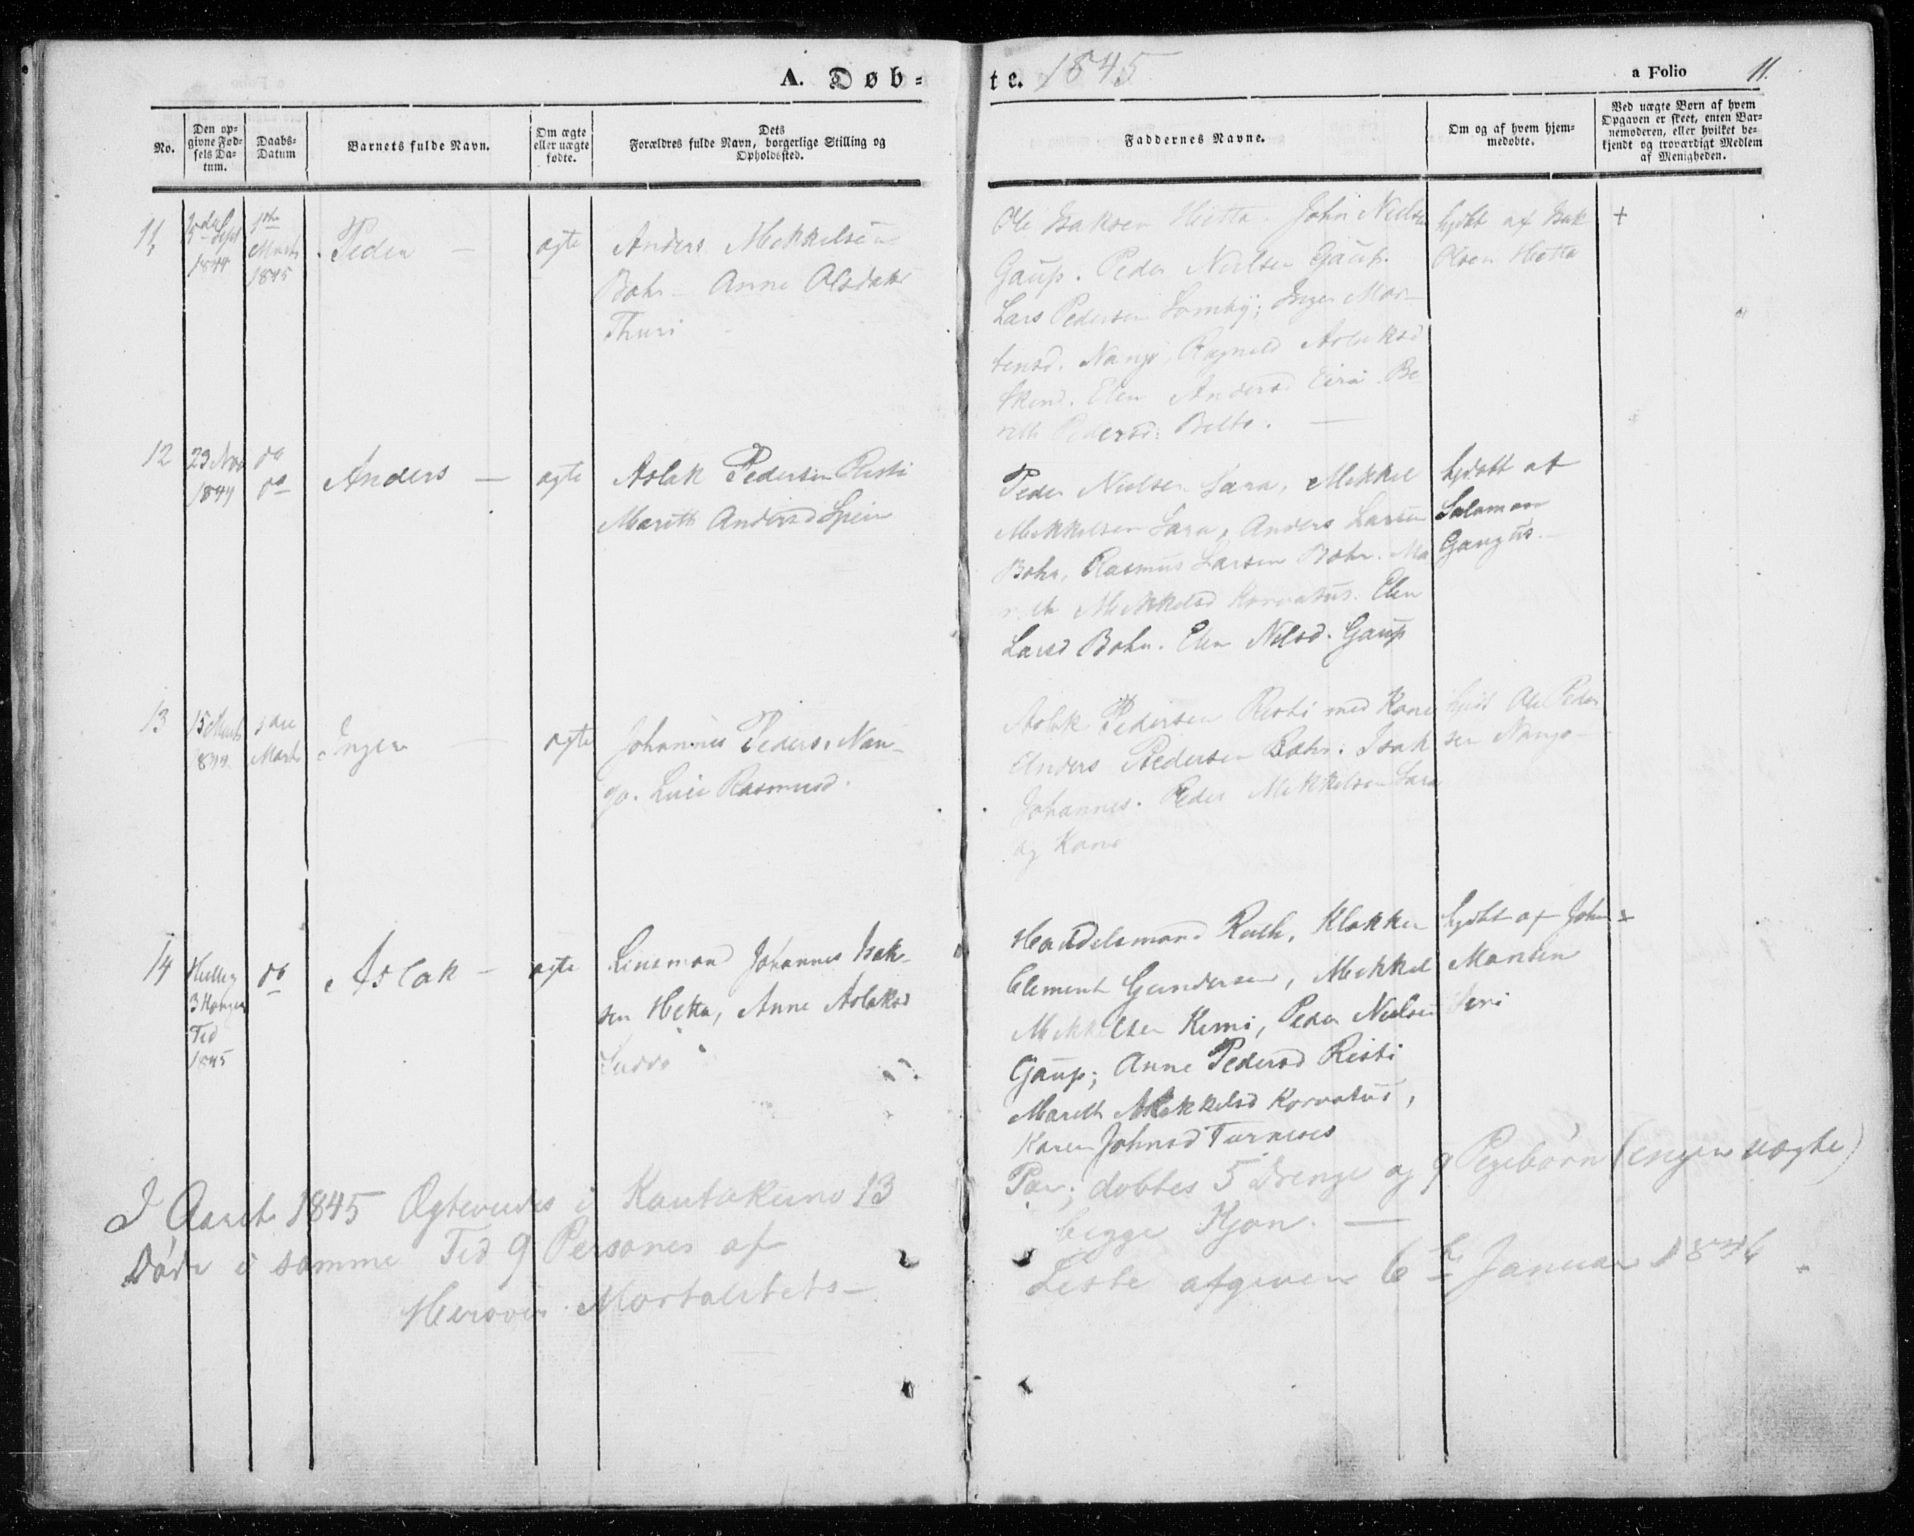 A. Døb=
te. 1845
a Folio 11.
No.
Den op=
givne Fød=
sels Da=
tum.
Daabs=
Datum
Barnets fulde Navn.
Om ægte
eller uægte
fødte.
Dets
Forældres fulde Navn, borgerlige Stilling og
Opholdssted.
Faddernes Navne.
Om og af hvem hjem=
medøbte.
Ved uægte Børn af hvem
Opgaven er skeet, enten Bar=
nemoderen, eller hvilket be=
kjendt og troværdigt Medlem
af Menigheden.
11,
Sept
1844
Marts
1845
Peder —
ægte
Anders Mekkelsen
Bahr - Anne Olsdatr
Thuri
Ole Isaksen Hetta. John Nielsen
Gaup. Peder Nielsen Gaup.
Lars Pedersen Somby; Inger Mor-
tensd. Nango, Ragnild Aslaksd
Skind. Elen Andersd Eira. Be-
reth Pedersd. Belto. —
hjdøbt af Isak
Olsen Hetta
+
12
23 Nov
1844
do
do
Anders —
ægte
Aslak Pedersen Risti
Marith Andersd Spein
Peder Nielsen Sara, Mekkel
Mekkelsen Sara, Anders Larsen
Bahr, Rasmus Larsen Bahr. Ma
rith Mekkelsd Korvatus. Elen
Larsd Bahr. Elen Nilsd. Gaup
hjdøbt af
Salamon
Gangus.
13
15 Marts
1844
Marts
Inger —
ægte
Johannes Peders. Nan-
go. Luci Rasmusd.
Aslak Pedersen Risti med Kone
Anders Pedersen Bahr. Isak
Johannes. Peder Mekkelsen Sara
og Kone
Ole Peder
sen Nango-
14
Hellig
3 Konger
Tid
1845
do
Aslak —
ægte
Lensmand Johannes Isak-
sen Hetta, Anne Aslaksd
Handelsmand Ruth, Klokker
Clement Gundersen, Mekkel
Mekkelsen Kemi, Peder Nielsen
Gaup; Anne Pedersd Risti
Marith Mekkelsd Korvatus,
Karen Johnsd Turneses
hjdøbt af John
Mansen
I Aaret 1845 Ægteviedes i Kautokeino 13
Par; døbtes 5 Drenge og 9 Pigebørn (ingen uægte)
Døde i samme Tid 9 Personer af
begge Kjøn. —
Herover Mortalitets-
Liste afgiven 6te Januar 1846.